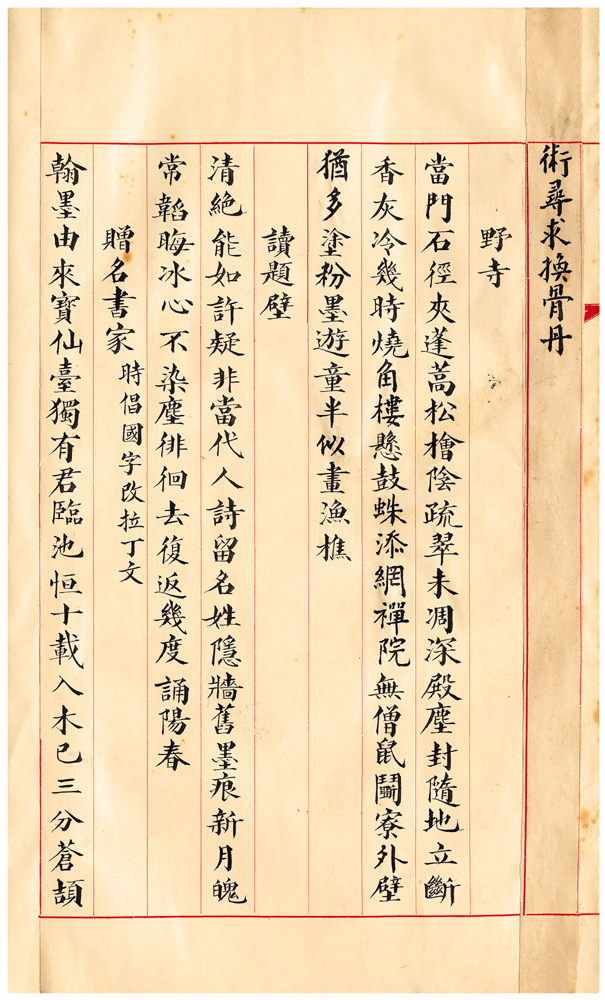 術尋求換骨丹
野寺
當門石徑夾蓬蒿松檜陰疏翠未凋深殿塵封隨地立斷
香灰冷幾時燒角樓懸鼓蛛添網禪院無僧鼠鬭寮外壁
猶多塗粉墨遊童半似畫漁樵
讀題壁
清絕能如許疑非當代人詩留名姓隱牆舊墨痕新月魄
常韜晦冰心不染塵徘徊去復返幾度誦陽春
贈名書家時倡國字改拉丁文
翰墨由來寶仙臺獨有君臨池恒十載入木已三分蒼頡